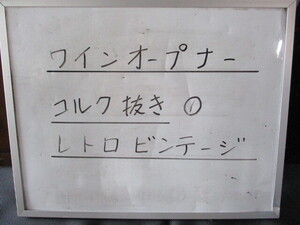 ワインオープナー
コルク抜き①
レトロビンテージ